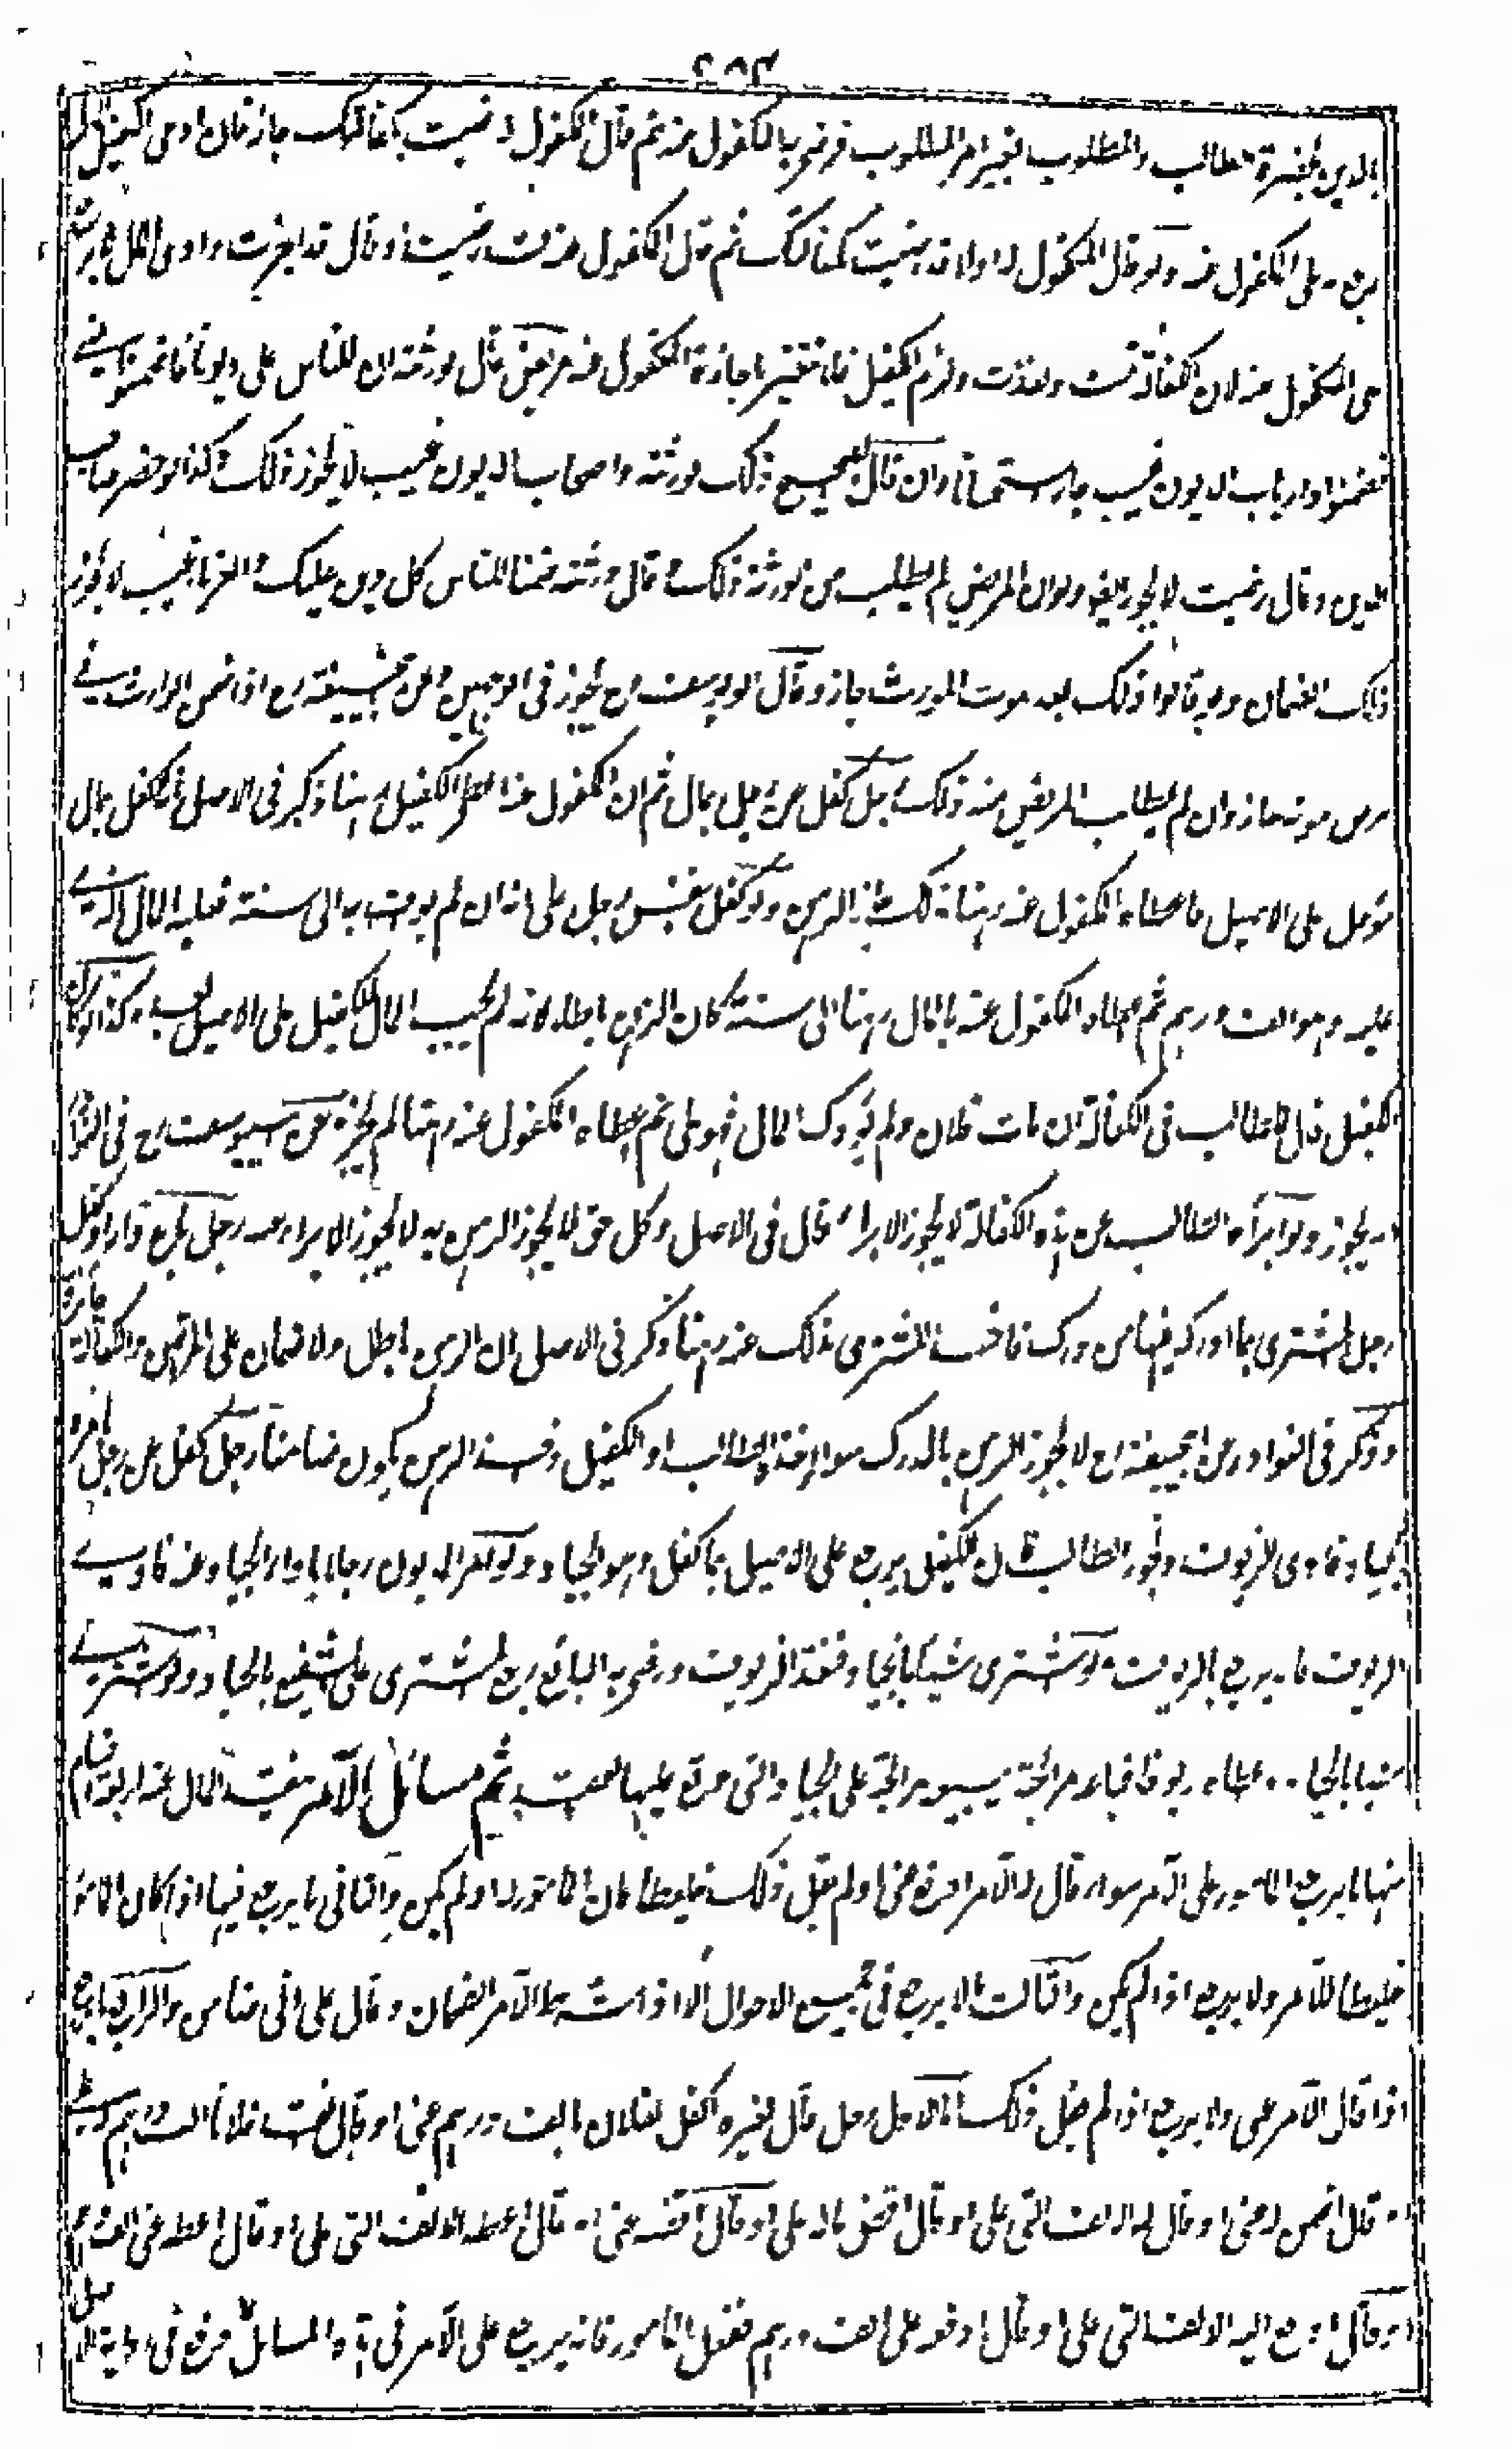 ٥٨٣
بالدين بحضرة الطالب والمطلوب بغير امر المطلوب فرضي بالمكفول عنه ثم قال المكفول له رضيت بكفالتك جاز فان ادى الكفيل المال
يرجع به على المكفول عنه ولو قال المكفول له اولا قد رضيت كفالتك ثم قال المكفول عنه قد رضيت او قال قد اجزت وادى المال لا يرجع
على المكفول عنه لان الكفالة تمت ونفذت ولزم الكفيل فلا تتغير باجازة المكفول عنه مريض قال لورثته ان للناس على ديونا فاضمنوا عني
فضمنوا وارباب الديون غيب جاز استحسانا وان قال الصحيح ذلك لورثته واصحاب الديون غيب لا يجوز ذلك وكذا لو حضر صاحب
الدين وقال رضيت لا يجوز ايضا ولو ان المريض لم يطلب من الورثة ذلك وقال ورثته ضمنا للناس كل دين عليك والغرماء غيب لا يجوز
ذلك الضمان ولو قالوا ذلك بعد موت المورث جاز وقال ابو يوسف رح يجوز في الوجهين وعن ابي حنيفة رح اذا ضمن الوارث في
مرض موته جاز وان لم يطلب المريض منه ذلك رجل كفل عن رجل بمال ثم ان المكفول عنه اعطى الكفيل رهنا ذكر في الاصل انه لو كفل بمال
مؤجل على الاصيل فاعطاه المكفول عنه رهنا بذلك جاز الرهن ولو كفل بنفس رجل على انه ان لم يوف به الى سنة فعليه المال الذي
عليه وهو الف درهم ثم اعطاه المكفول عنه بالمال رهنا الى سنة كان الرهن باطلا لانه لم يجب المال للكفيل على الاصيل بعد وكذا لو كان
الكفيل قال للطالب في الكفالة ان مات فلان ولم يؤدك المال فهو علي ثم اعطاه المكفول عنه رهنا لم يجز وعن ابي يوسف رح في النوادر
انه يجوز ولو ابرأه الطالب عن هذه الكفالة لا يجوز الابراء قال في الاصل وكل حق لا يجوز الرهن به لا يجوز الابراء عنه رجل باع دارا وكفل
رجل للمشتري بما ادركه فيها من درك فاخذ المشتري بذلك عنه رهنا ذكر في الاصل ان الرهن باطل ولا ضمان على المرتهن والكفالة جائزة
وذكر في النوادر عن ابي حنيفة رح لا يجوز الرهن بالدرك سواء اخذه الطالب او الكفيل وفسد الرهن يكون ضامنا رجل كفل عن رجل بامره
بالجياد فادى الزيوف وتجوز الطالب قال الكفيل يرجع على الاصيل بما كفل وهو الجياد ولو امر المديون رجلا باداء الجياد عنه فادى
الزيوف فانه يرجع بالزيوف ولو اشترى شيئا بالجياد فنقد الزيوف ورضي به البائع يرجع المشتري على الشفيع بالجياد ولو اشترى
شيئا بالجياد واعطاه زيوفا فباعه مرابحة يبيعه مرابحة على الجياد والتي وقع عليها العقد ثم مسائل الآمر بنقد المال عنه اربعة اقسام
منها ما يرجع المامور على الآمر سواء قال له الآمر ادفع عني او لم يقل ذلك خليطا كان المامور له او لم يكن والثاني ما يرجع فيها اذا كان المامور
خليطا للآمر ولا يرجع اذا لم يكن والثالث لا يرجع في جميع الاحوال الا اذا شرط الآمر الضمان وقال على اني ضامن والرابع يرجع
اذا قال الآمر عني ولا يرجع اذا لم يقل ذلك اما الاول رجل قال لغيره اكفل لفلان بالف درهم عني او قال انقد فلانا الف درهم له علي
او قال اضمن له عني او قال له الالف التي علي او قال اقض ماله علي او قال اقضه عني او قال اعطه الالف التي علي او قال اعطه عني الف درهم
او قال ادفع اليه الالف التي علي او قال ادفع عني الف درهم ففعل المامور فانه يرجع على الآمر في هذه المسائل فرجع في رواية الاصل